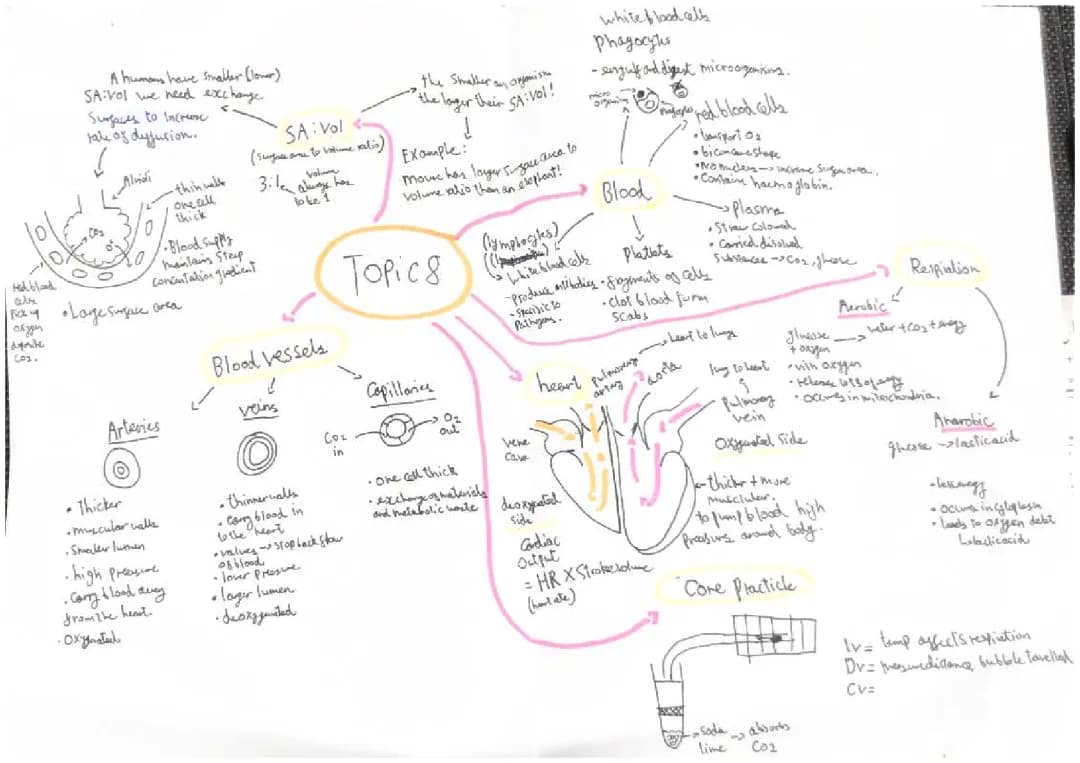 Topic 8
SA:Vol
(Surface area to volume ratio)
3:1
volume
always has
to be 1
A humans have smaller (lower)
SA:Vol we need exchange
Surfaces to increase
rate of diffusion.
Alvioli
thin walls
one cell
thick
CO2
O2
• Blood supply
maintains steep
concentration gradient
Red blood
cells
Pick up
oxygen
deposite
CO2.
• Large surface area
the smaller an organism
the larger their SA:Vol!
Example:
Mouse has larger surface area to
volume ratio than an elephant!
Blood
white blood cells
phagocytes
- engulf and digest microorganisms.
micro
phagocytes
red blood cells
• transport O2
• biconcave shape
• no nucleus → increase surface area.
• Contains haemoglobin.
Plasma
• Straw coloured
• Carried dissolved
substances → CO2, glucose
Platlets
• fragments of cells
• clot blood form
scabs
(lymphocytes)
→ White blood cells
- produce antibodies
- specific to
pathogens.
Respiration
Aerobic
glucose → water + CO2 + energy
+ oxygen
• with oxygen
• release lots of energy
• occurs in mitochondria.
Anarobic
glucose → lactic acid
• less energy
• occurs in cytoplasm
• leads to oxygen debt
lactic acid
Blood vessels
Arteries
• Thicker
• muscular walls
• Smaller lumen
• high pressure
• Carry blood away
from the heart.
• oxygenated
veins
• thinner walls
• carry blood in
to the heart
• valves → stop back flow
of blood
• lower pressure
• larger lumen
• deoxygenated
Capillaries
CO2
in
O2
out
• one cell thick
• exchange of materials
and metabolic waste
heart
pulmonary
artery
→ heart to lungs
aorta
lung to heart
pulmonary
vein
Oxygenated side
vena
cava
deoxygenated
side
thicker + more
musclular.
to pump blood high
pressure around body.
Cardiac
output
= HR X Stroke volume
(heart rate)
Core Practicle
→ soda
lime
→ absorbs
CO2
Iv = temp affects respiration
Dv = measure distance bubble travelled
Cv =